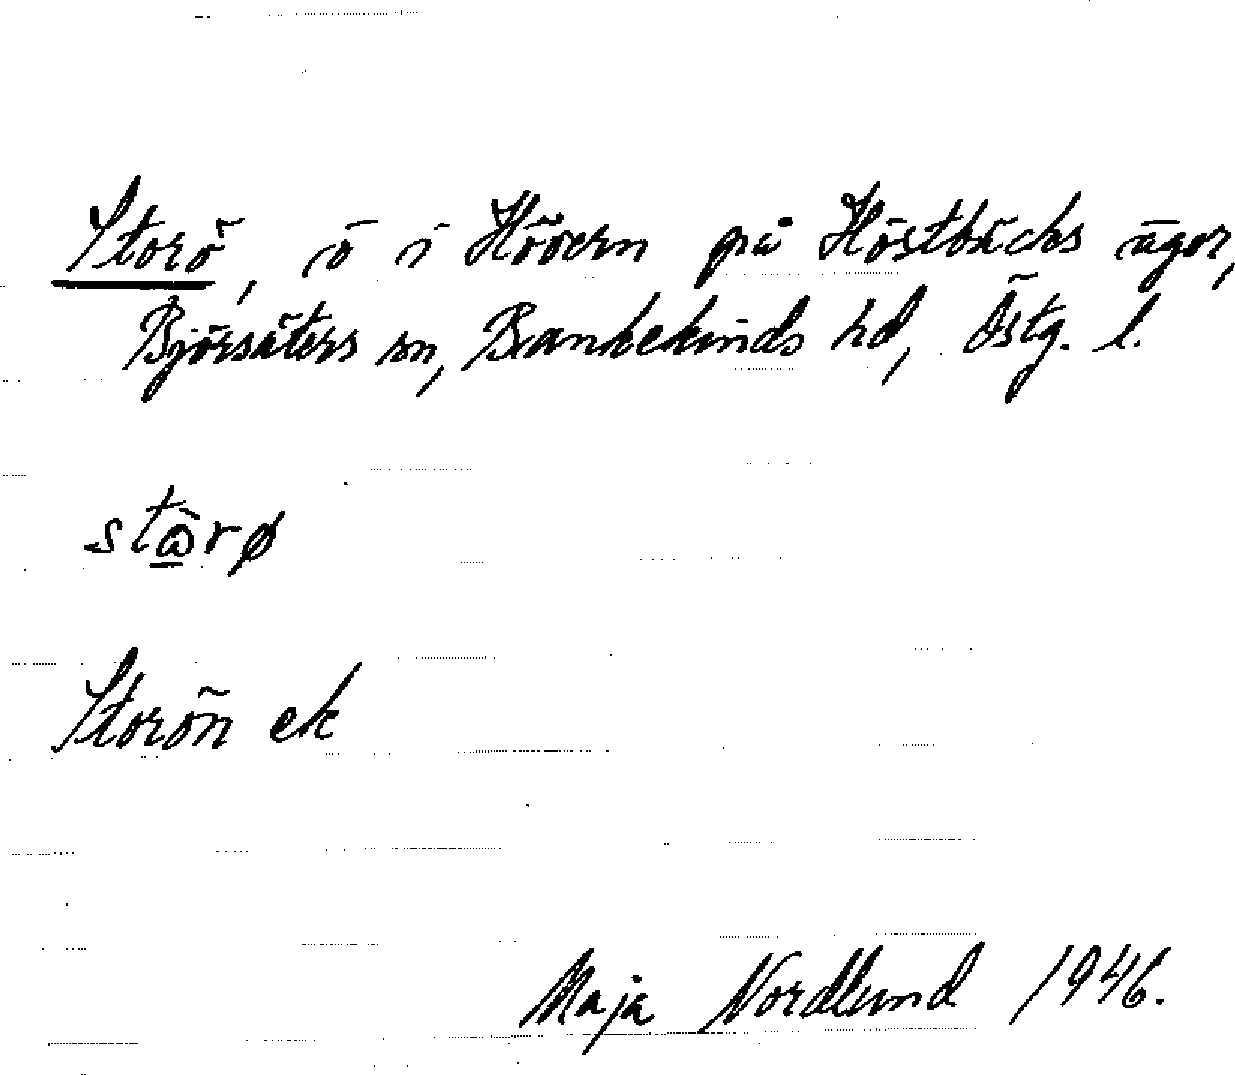 Storö, ö i Hövern på Höstbäcks ägor,
Björsäters sn, Bankekinds hd, Östg. l.
stὼrø
Storön ek
Maja Nordlund 1946.